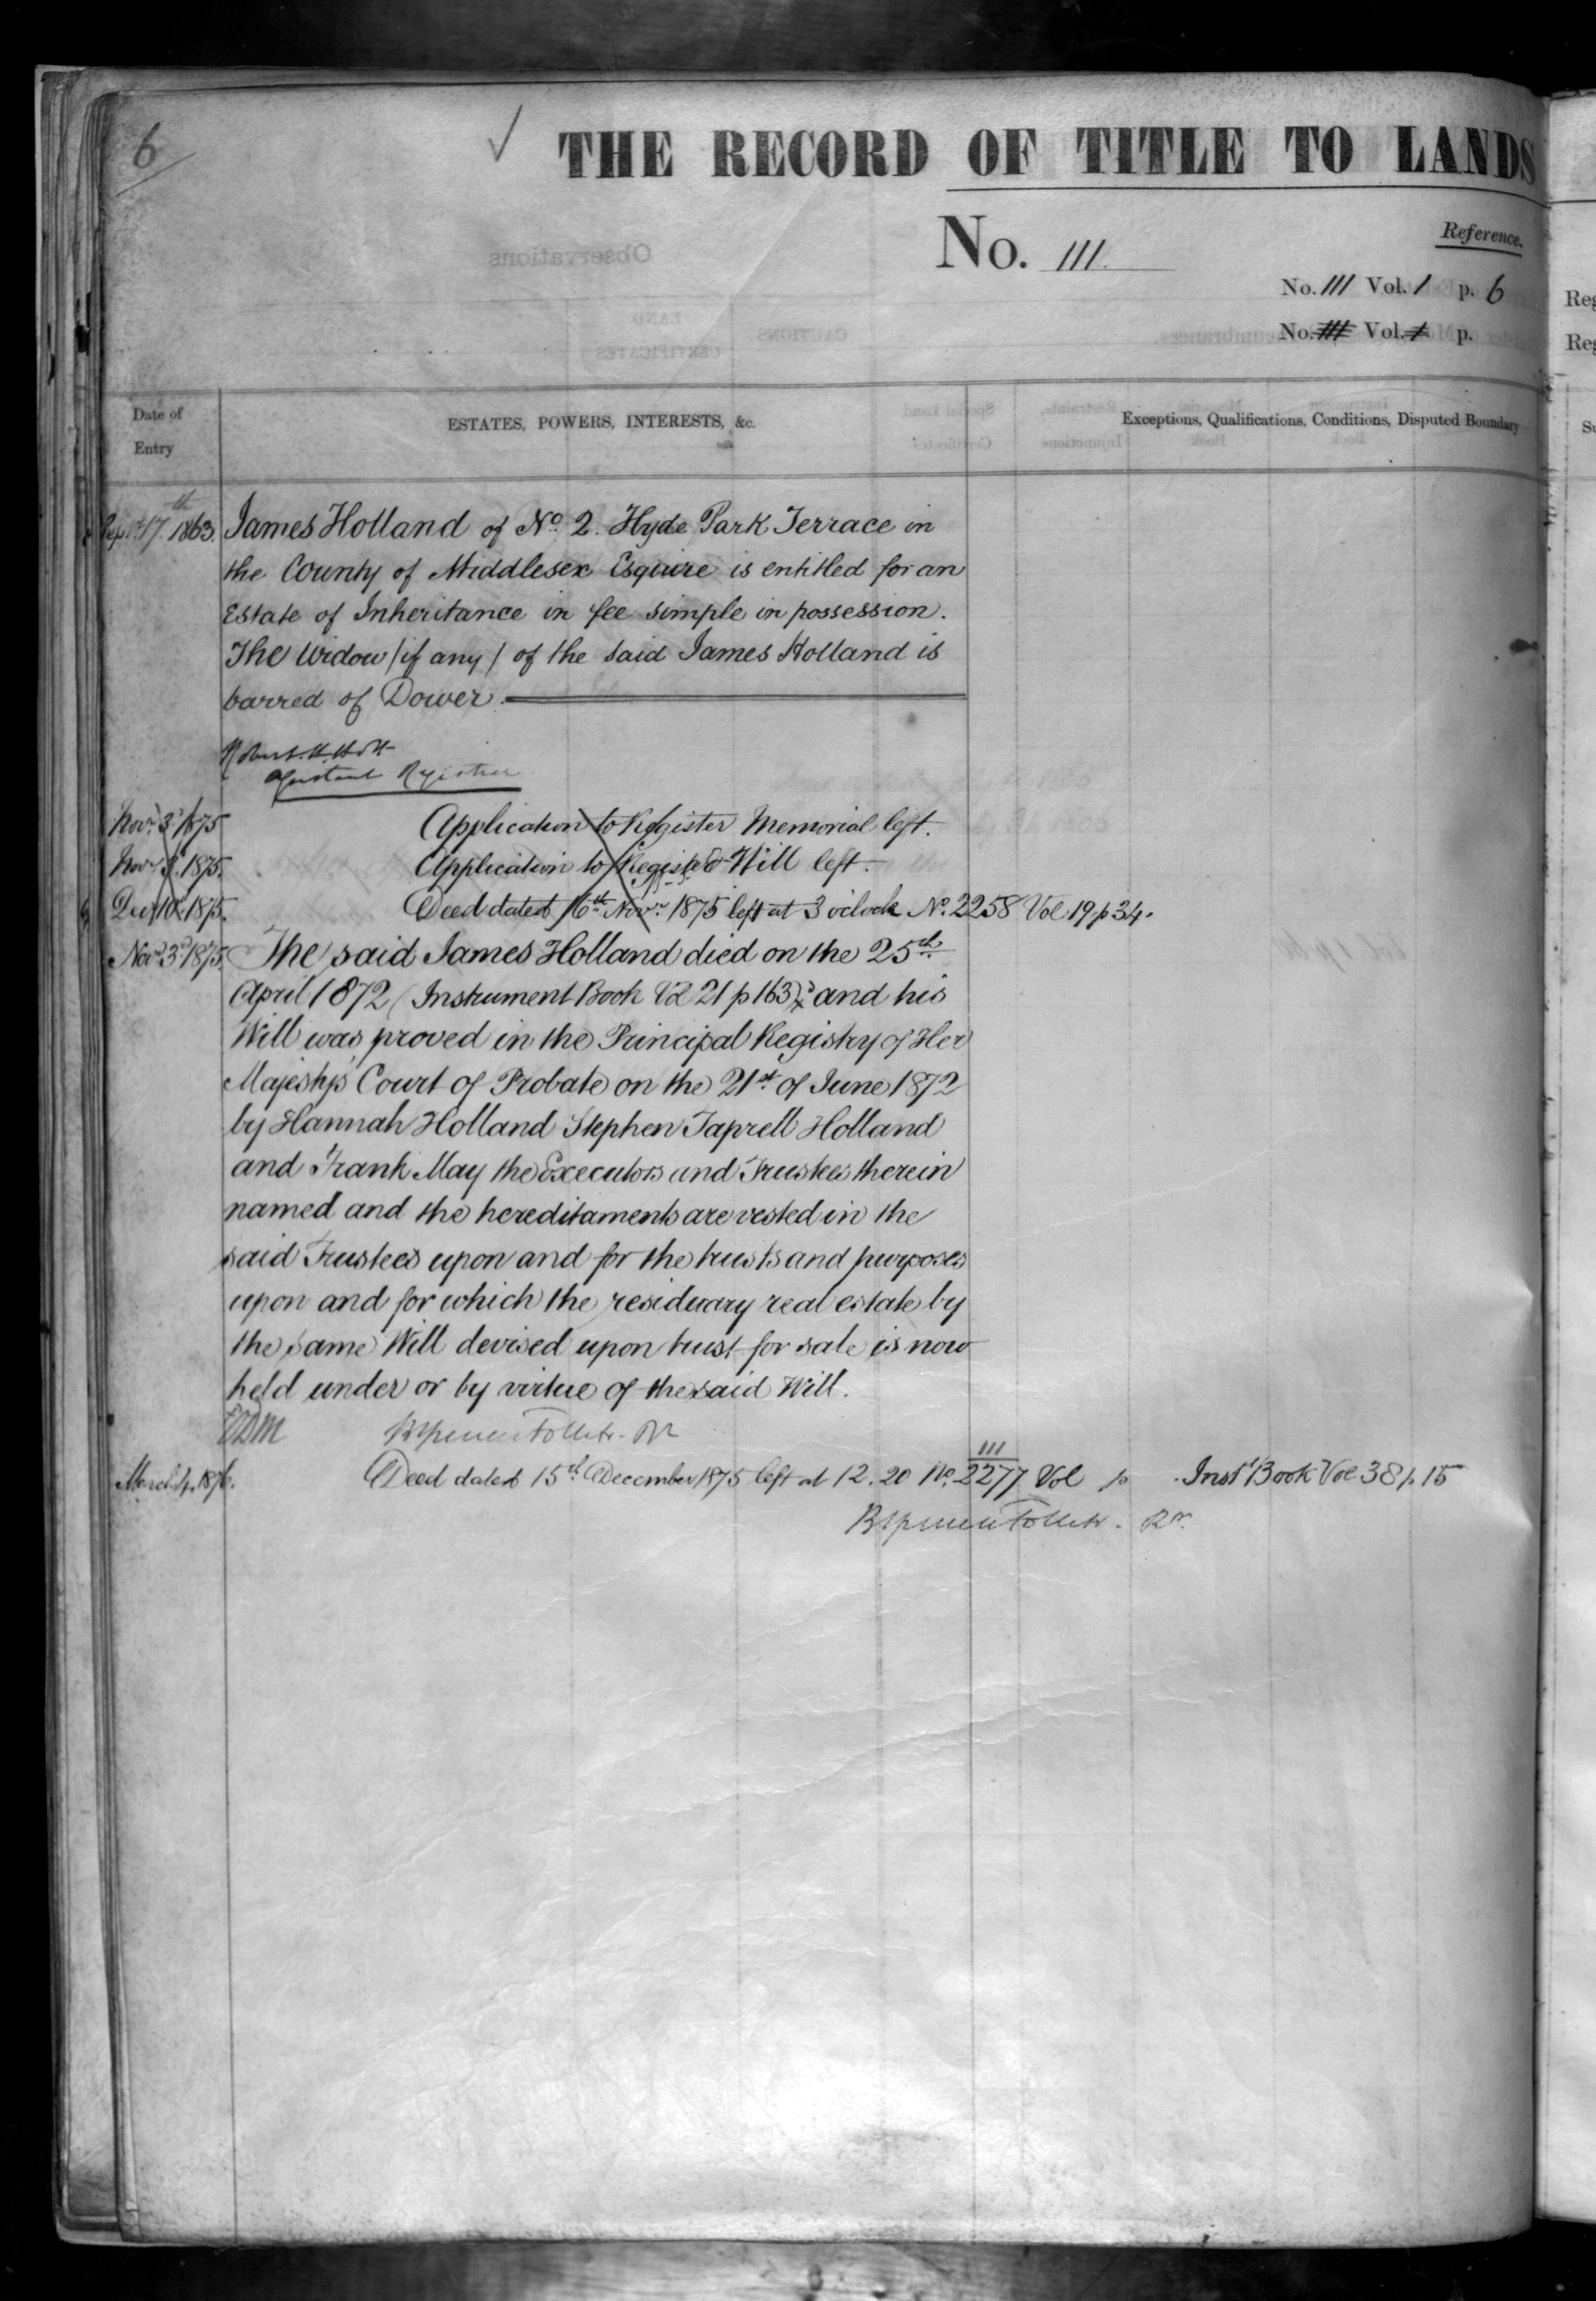 6
THE RECORD OF TITLE TO LANDS
No. 111.
Reference.
No. 111 Vol. 1 p. 6
No. 111 Vol. 1 p.
Date of Entry
ESTATES, POWERS, INTERESTS, &c.
Exceptions, Qualifications, Conditions, Disputed Boundary
Sept. 17th 1863. James Holland of No. 2. Hyde Park Terrace in
the County of Middlesex Esquire is entitled for an
Estate of Inheritance in fee simple in possession.
The Widow (if any) of the said James Holland is
barred of Dower.
Robert H. Holt
Assistant Registrar
Novr. 3d 1875 Application to Register Memorial left.
Novr 3. 1875. Application to Register Will left.
Decr 10. 1875. Deed dated 16th Novr. 1875 left at 3 o'clock No. 2258 Vol. 19 p 34.
Novr 3rd 1875. The said James Holland died on the 25th
April 1872 (Instrument Book Vol 21 p 163) and his
Will was proved in the Principal Registry of Her
Majesty's Court of Probate on the 21st of June 1872
by Hannah Holland Stephen Taprell Holland
and Frank May the Executors and Trustees therein
named and the hereditaments are vested in the
said Trustees upon and for the trusts and purposes
upon and for which the residuary real estate by
the same Will devised upon trust for sale is now
held under or by virtue of the said Will.
Follett. Rr
111
March 4. 1876. Deed dated 15th December 1875 left at 12.20 No. 2277 Vol p Inst Book Vol 38 p. 15
Follett. Rr.
Reg
Reg